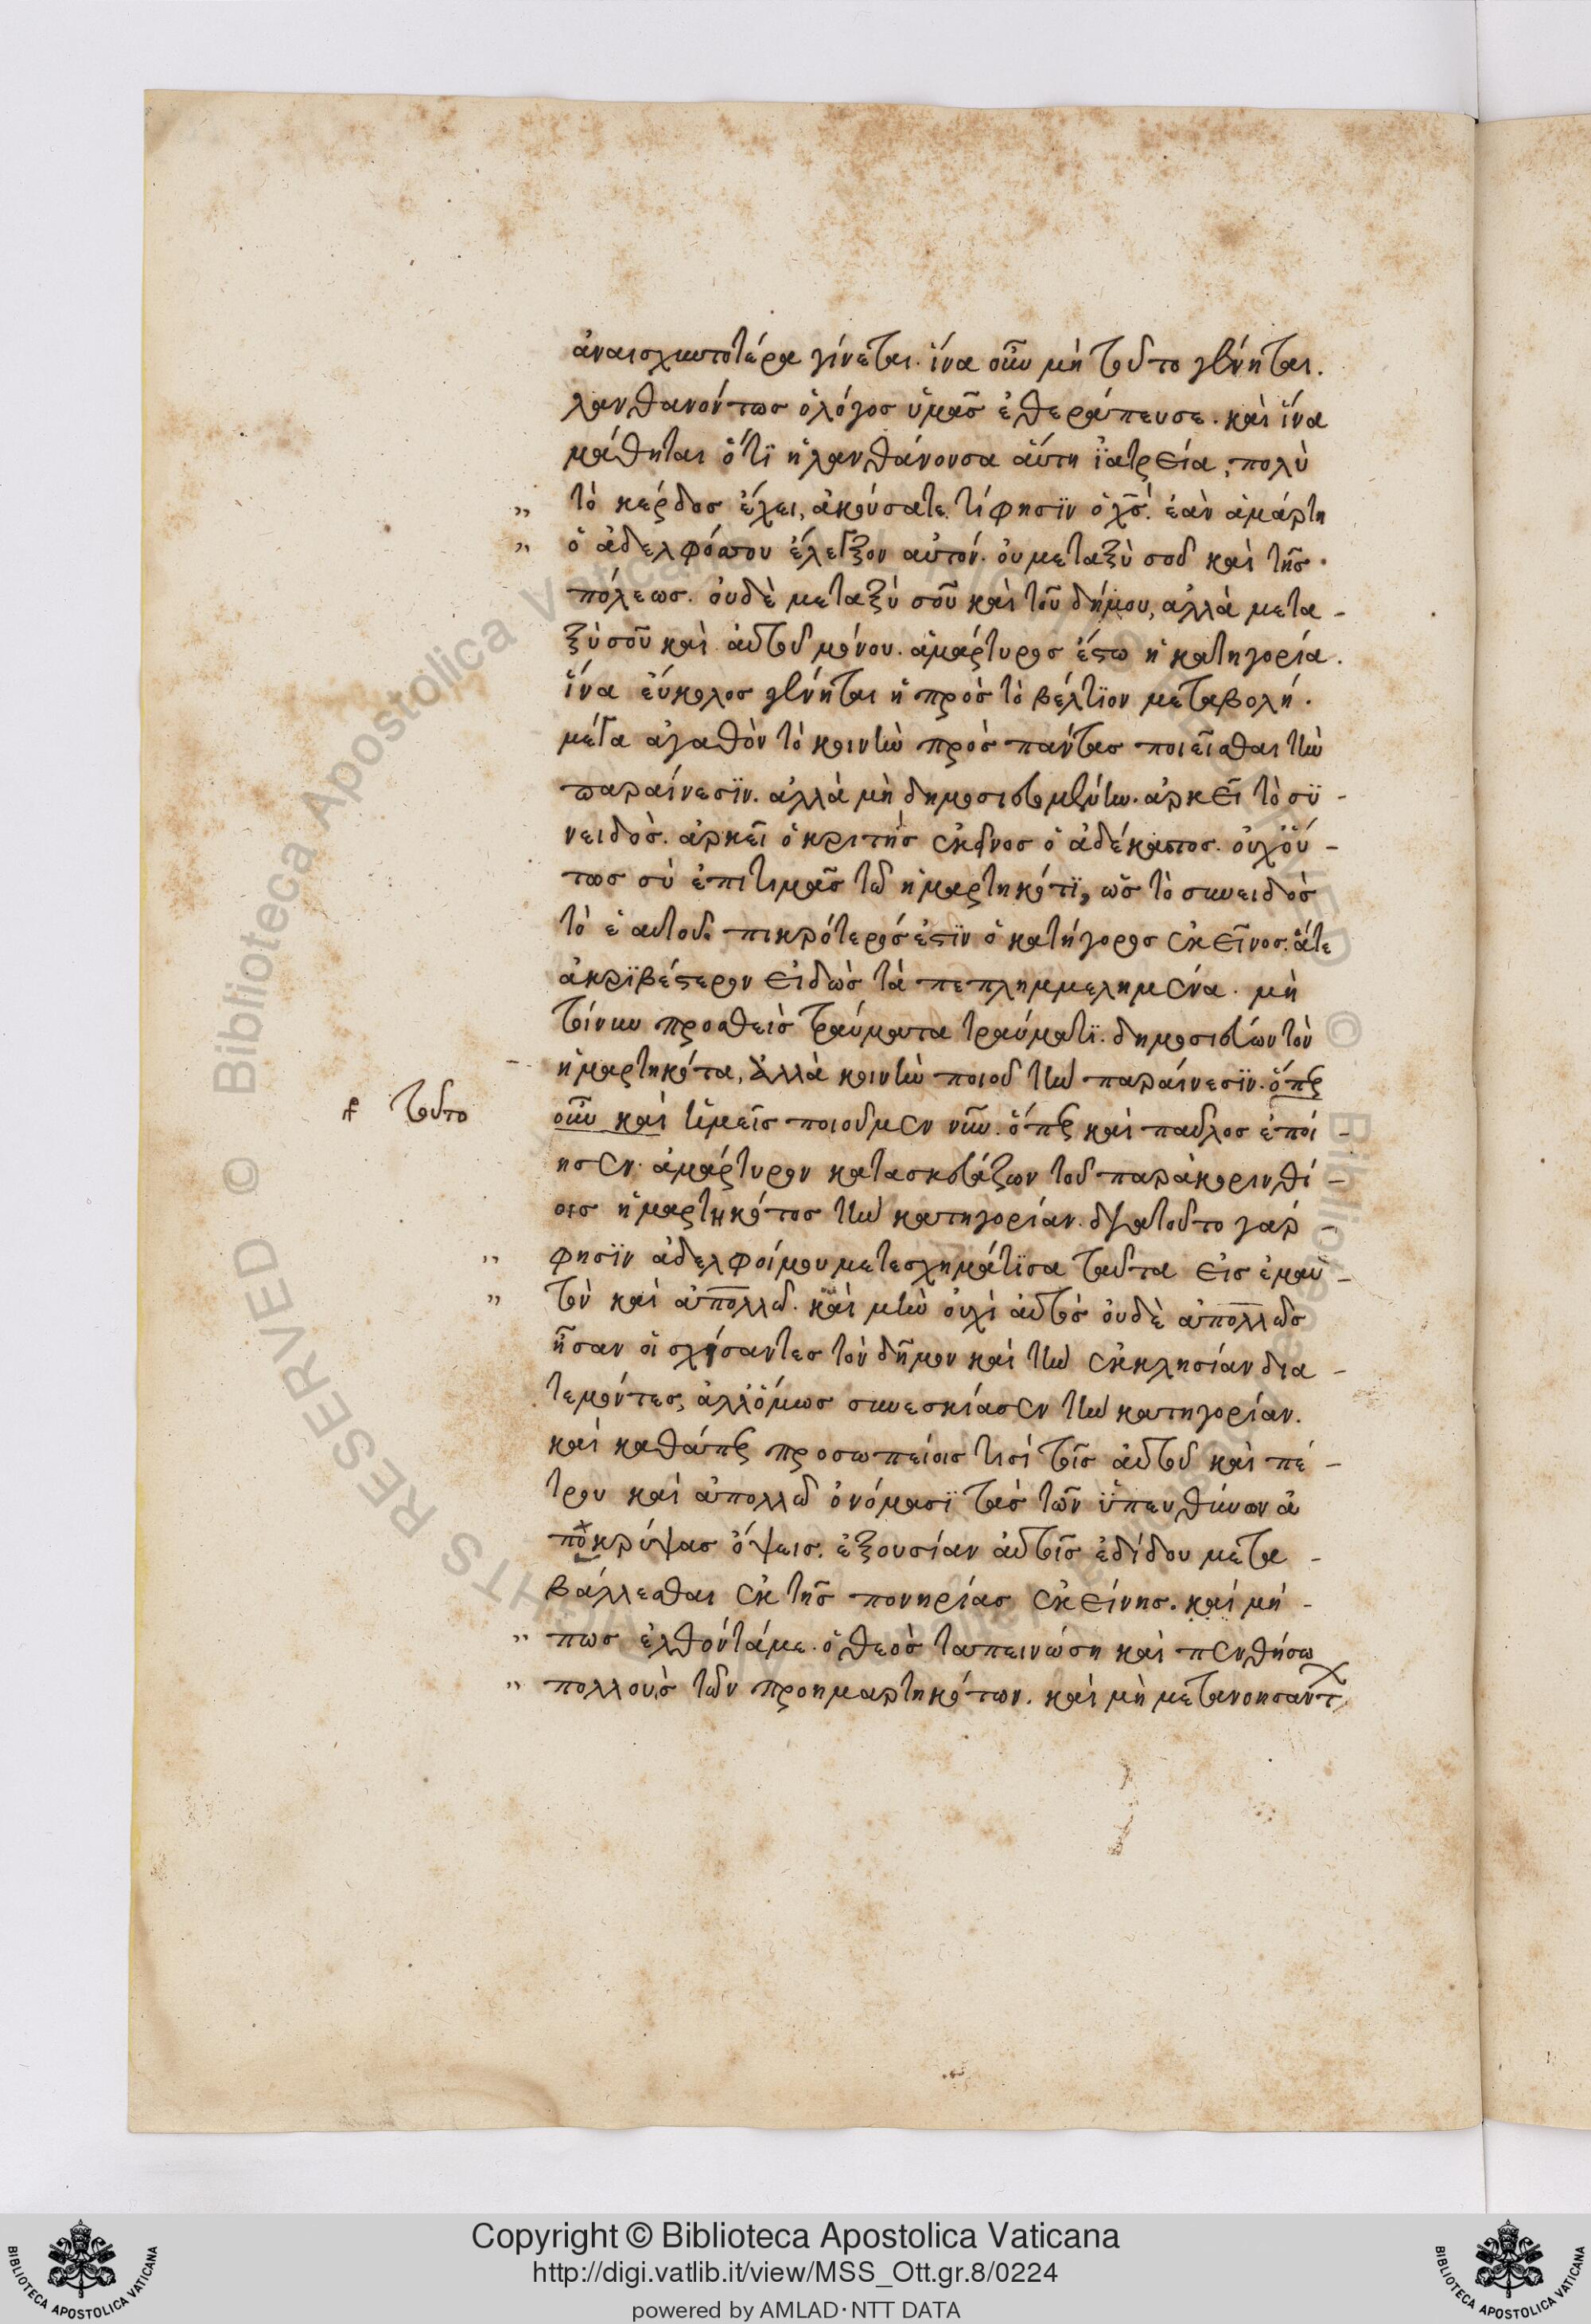 ἀναισχυντοτέρα γίνεται. ἵνα οὖν μὴ τοῦτο γένηται.
λανθανόντως ὁ λόγος ὑμᾶς ἐθεράπευσε. καὶ ἵνα
μάθηται ὅτϊ ἡ λανθάνουσα αὕτη ϊατρεία, πολὺ
„ τὸ κέρδος ἔχει, ἀκούσατε τί φησϊν ὁ χς̅. ἐὰν ἁμάρτη
„ ὁ ἀδελφόσσου ἔλεγξον αὐτόν. οὐ μεταξὺ σοῦ καὶ τῆς
πόλεως. οὐδὲ μεταξύ σοῦ καὶ τοῦ δήμου, ἀλλὰ μετα-
ξὺ σοῦ καὶ αὐτοῦ μόνου. ἀμάρτυρος ἔστω ἡ κατηγορία.
ἵνα εὔκολος γένηται ἡ πρὸς τὸ βέλτϊον μεταβολή.
μέγα ἀγαθὸν τὸ κοινὴν πρὸς πάντας ποιεῖσθαι τὴν
παραίνεσϊν. ἀλλὰ μὴ δημοσιευμένην. ἀρκεῖ τὸ συ-
νειδὸς. ἀρκεῖ ὁ κριτής ἐκεῖνος ὁ ἀδέκαστος. οὐχ οὕ-
τως σὺ ἐπιτιμᾶς τῶ ἡμαρτηκότϊ, ὡς τὸ συνειδὸς
τὸ ἑαυτοῦ. πικρότερός ἐστϊν ὁ κατήγορος ἐκεῖνος. ἅτε
ἀκρϊβέστερον εἰδὼς τὰ πεπλημμελημένα. μὴ
τοίνυν προσθεὶς τραύματα τραύματϊ. δημοσιεύων τὸν
ἡμαρτηκότα, ἀλλὰ κοινὴν ποιοῦ τὴν παραίνεσϊν. ὅπερ
τοῦτο
οὖν καὶ ἡμεῖς ποιοῦμεν νῦν. ὅπερ καὶ παῦλος ἐποί-
ησεν. ἀμάρτυρον κατασκευάζων τοῦ παρὰ κορινθί-
οις ἡμαρτηκότος τὴν κατηγορίαν. διατοῦτο γὰρ
„ φησϊν ἀδελφοί μου μετεσχημάτϊσα ταῦτα εἰς ἐμαυ-
„ τὸν καὶ ἀπολλῶ. καὶ μὴν οὐχὶ αὐτὸς οὐδὲ ἀπολλῶς
ἦσαν οἱ σχίσαντες τὸν δῆμον καὶ τὴν ἐκκλησίαν δια-
τεμόντες, ἀλλ' ὅμως συνεσκίασεν τὴν κατηγορίαν.
καὶ καθάπερ προσωπείοις τισὶ τοῖς αὐτοῦ καὶ πέ-
τρου καὶ ἀπολλῶ ὀνόμασϊ τὰς τῶν ϋπευθύνων ἀ
ποκρύψας ὄψεις. ἐξουσίαν αὐτοῖς ἐδίδου μετα-
βάλλεσθαι ἐκ τῆς πονηρίας ἐκείνης. καὶ μή-
„ πως ἐλθόντάμε. ὁ θεὸς ταπεινώση καὶ πενθήσω
„ πολλοὺς τῶν προημαρτηκότων. καὶ μὴ μετανοησάντ
Copyright © Biblioteca Apostolica Vaticana
http://digi.vatlib.it/view/MSS_Ott.gr.8/0224
powered by AMLAD·NTT DATA
BIBLIOTECA APOSTOLICA VATICANA
BIBLIOTECA APOSTOLICA VATICANA